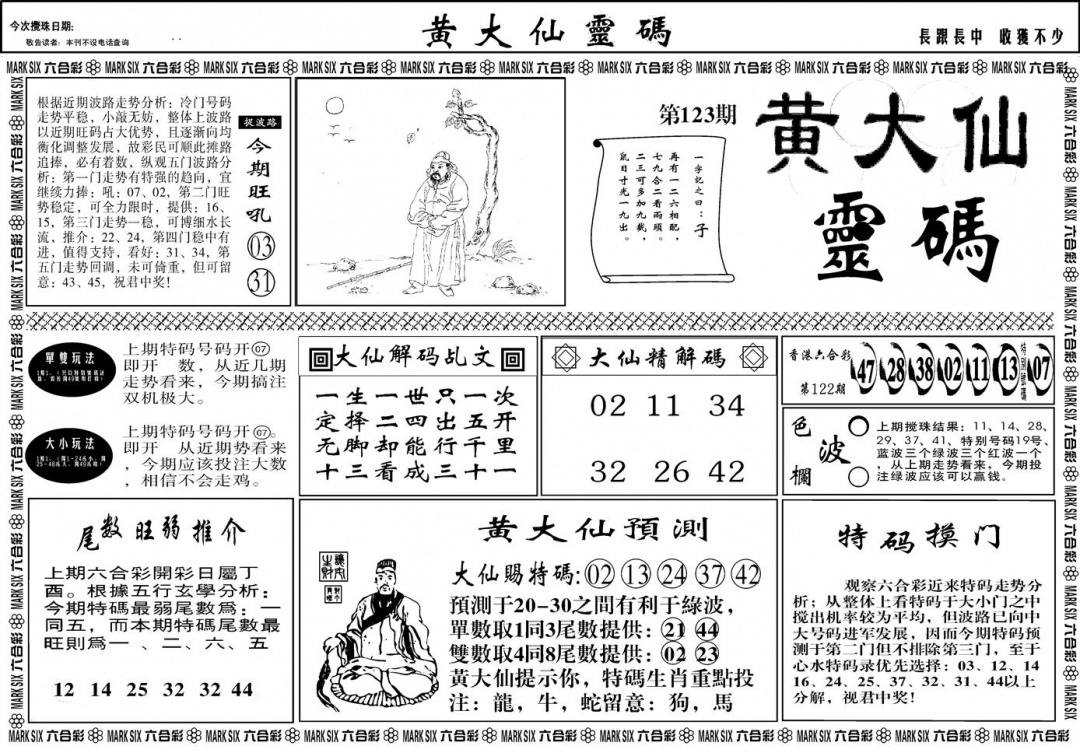 今次攪珠日期:
敬告读者: 本刊不设电话查询
黃大仙靈碼
長跟長中 收獲不少
MARK SIX 六合彩 MARK SIX 六合彩 MARK SIX 六合彩 MARK SIX 六合彩 MARK SIX 六合彩 MARK SIX 六合彩 MARK SIX 六合彩 MARK SIX 六合彩 MARK SIX 六合彩 MARK SIX 六合彩 MARK SIX 六合彩
根据近期波路走势分析：冷门号码
走势平稳，小敲无妨，整体上波路
以近期旺码占大优势，且逐渐向均
衡化调整发展，故彩民可顺此摊路
追捧，必有着数，纵观五门波路分
析：第一门走势有特强的趋向，宜
继续力捧：吼：07、02，第二门旺
势稳定，可全力限时，提供：16、
15，第三门走势一稳，可博细水长
流，推介：22、24，第四门稳中有
进，值得支持，看好：31、34，第
五门走势回调，未可倚重，但可留
意：43、45，祝君中奖！
捉波路
今期旺吼
03
31
第123期
一字記之曰：子
再有一二六相配，
七九合二看兩頭。
二三可多加九截，
鼠目寸光一九出。
黃大仙
靈碼
單雙玩法
上期特码号码开07
即开 数，从近几期
走势看来，今期搞注
双机极大。
大小玩法
上期特码号码开07。
即开 从近期势看来
，今期应该投注大数
，相信不会走鸡。
大仙解码乩文
一生一世只一次
定择二四出五开
无脚却能行千里
十三看成三十一
大仙精解碼
02 11 34
32 26 42
香港六合彩
第122期
47 28 38 02 11 13
特別號碼
07
色波欄
上期搅珠结果：11、14、28、
29、37、41、特别号码19号、
蓝波三个绿波三个红波一个
，从上期走势看来，今期投
注绿波应该可以赢钱。
尾数旺弱推介
上期六合彩開彩日屬丁
酉。根據五行玄學分析：
今期特碼最弱尾數爲：一
同五，而本期特碼尾數最
旺則爲一 、二、六、五
12 14 25 32 32 44
黃大仙預測
大仙賜特碼:02 13 24 37 42
預測于20-30之間有利于綠波，
單數取1同3尾數提供：21 44
雙數取4同8尾數提供：02 23
黃大仙提示你，特碼生肖重點投
注：龍，牛，蛇留意：狗，馬
特码摸门
观察六合彩近来特码走势分
析；从整体上看特码于大小门之中
搅出机率较为平均，但波路已向中
大号码进军发展，因而今期特码预
测于第二门但不排除第三门，至于
心水特码录优先选择：03、12、14
16、24、25、37、32、31、44以上
分解，祝君中奖！
MARK SIX 六合彩 MARK SIX 六合彩 MARK SIX 六合彩 MARK SIX 六合彩 MARK SIX 六合彩 MARK SIX 六合彩 MARK SIX 六合彩 MARK SIX 六合彩 MARK SIX 六合彩 MARK SIX 六合彩 MARK SIX 六合彩